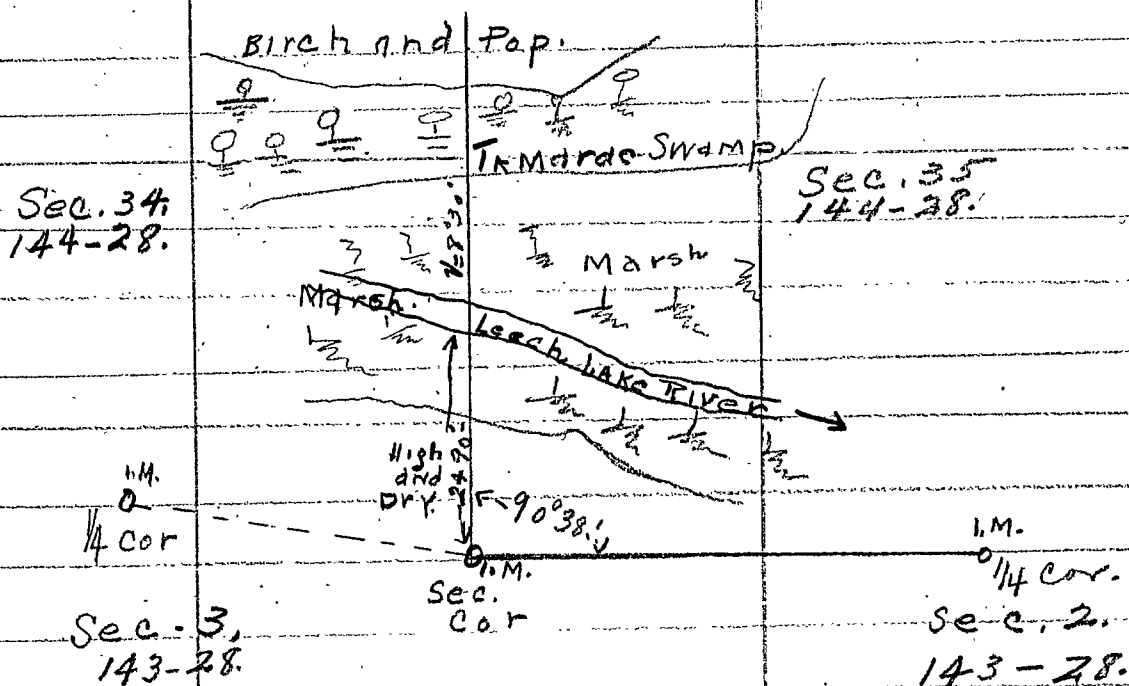 Birch and Pop.
TaMarac Swamp.
Sec. 34.
144-28.
Sec. 35
144-28.
V=8°30'
Marsh
Marsh.
Leech LAKE River
High
and
Dry.
2+90
90°38'
I.M.
1/4 Cor
I.M.
Sec.
Cor
I.M.
1/4 Cor.
Sec. 3,
143-28.
Sec. 2.
143-28.